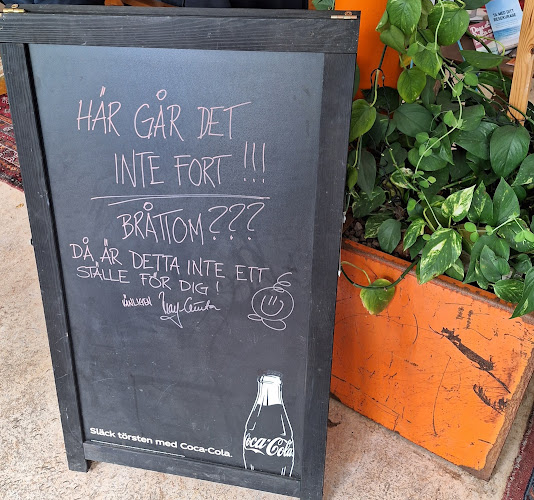 HÄR GÅR DET
INTE FORT!!!
BRÅTTOM???
DÅ ÄR DETTA INTE ETT
STÄLLE FÖR DIG!
Släck törsten med Coca-Cola.
Coca-Cola